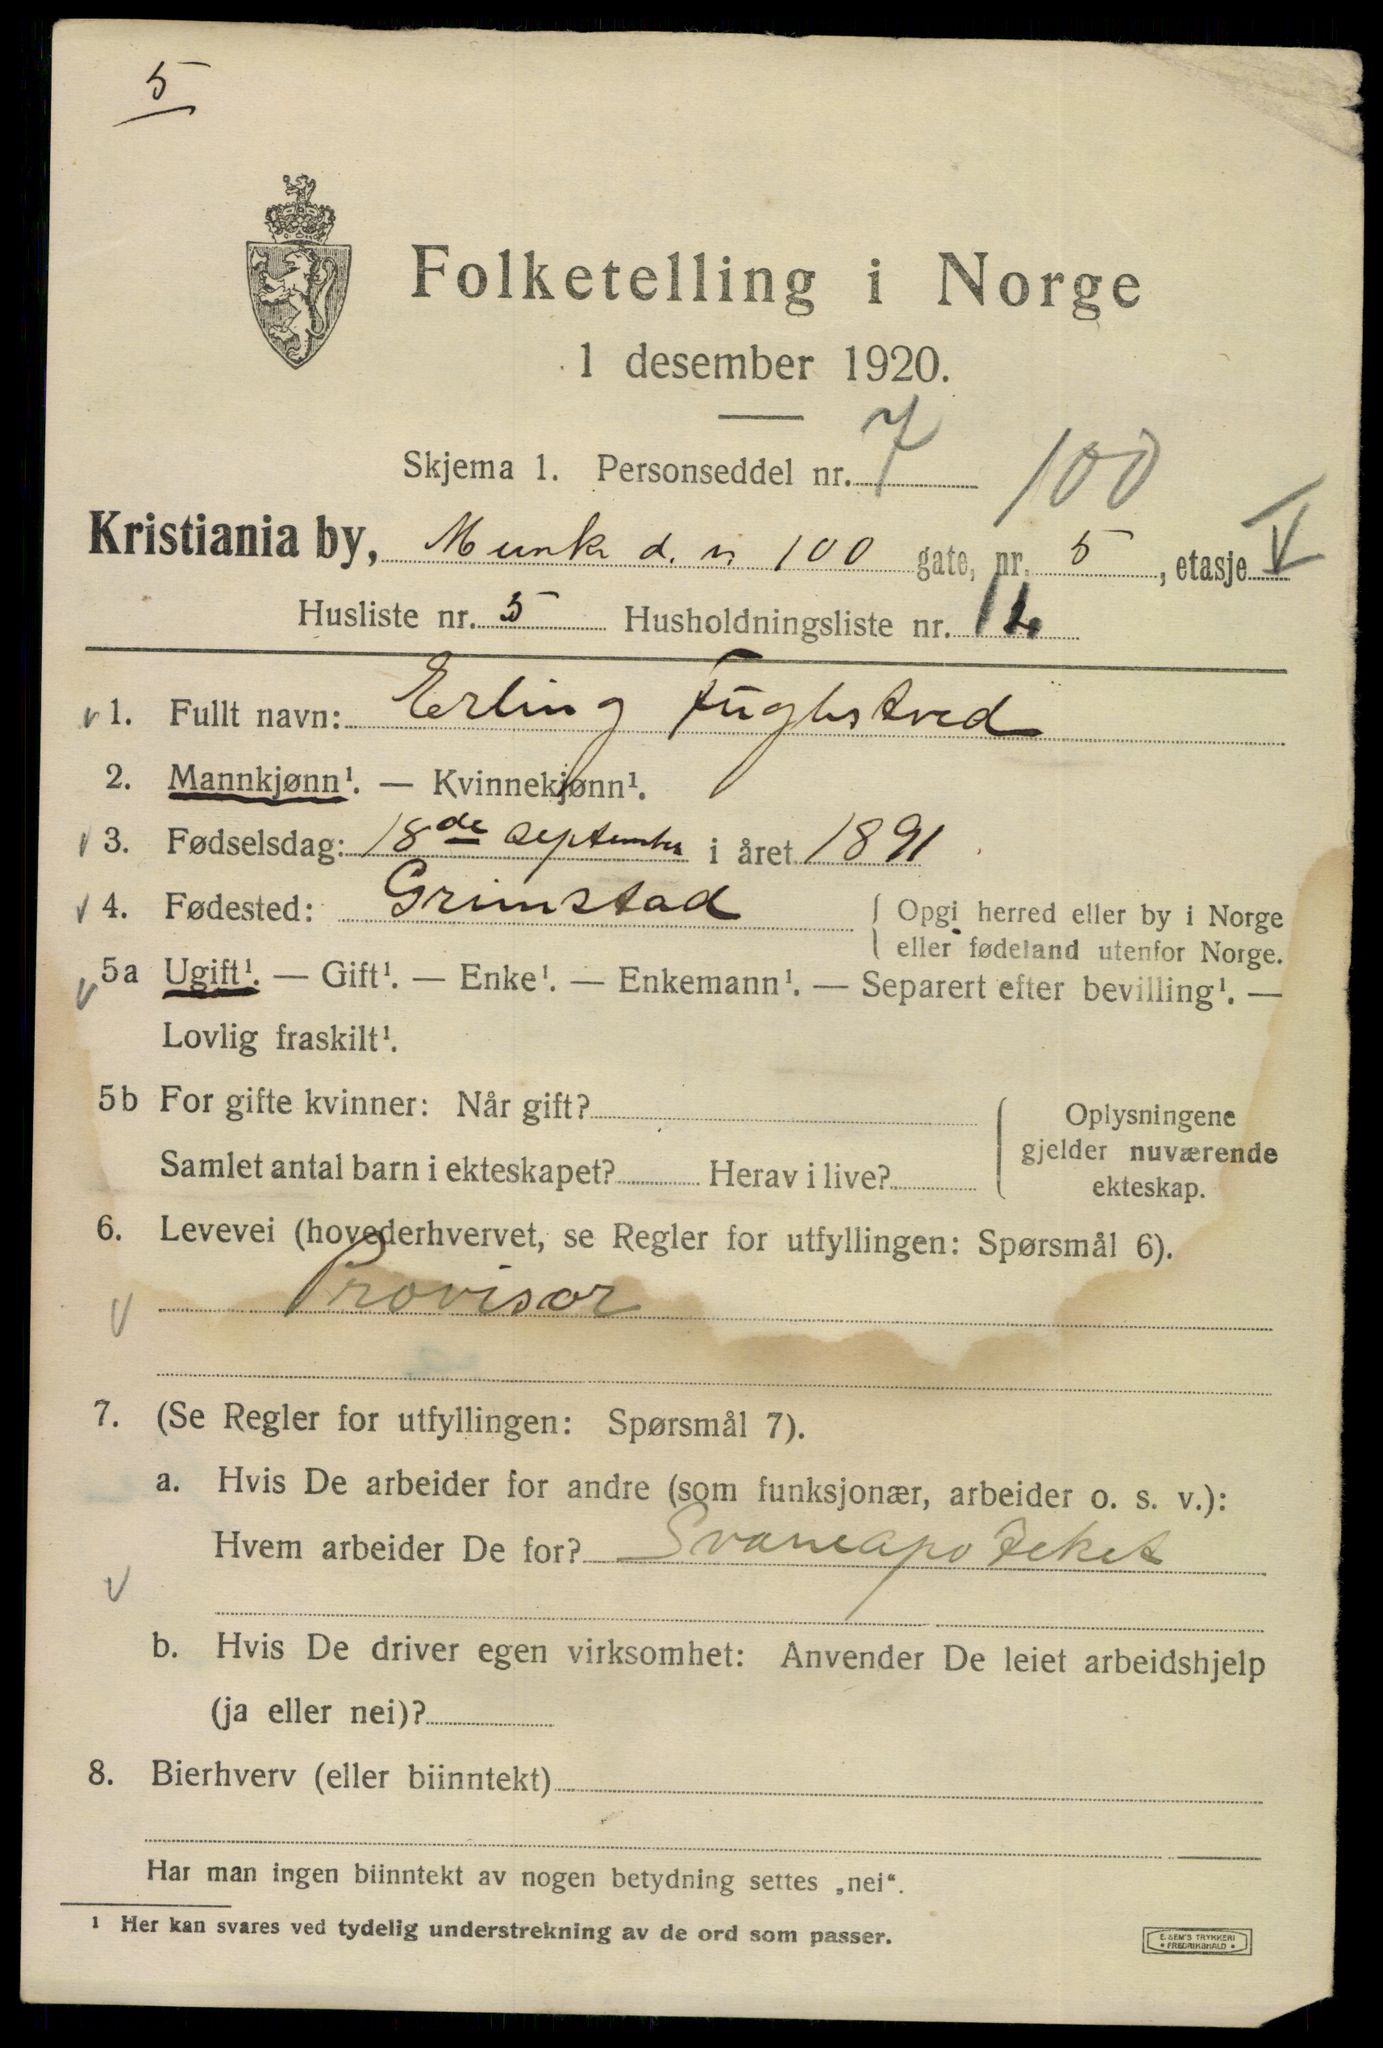 5
Folketelling i Norge
1 desember 1920.
Skjema 1. Personseddel nr. 7
100
Kristiania by, Munk d. v. 100 gate, nr. 5, etasje V
Husliste nr. 5 Husholdningsliste nr. 12
1. Fullt navn: Erling Fuglestved
2. Mannkjønn¹. — Kvinnekjønn¹.
3. Fødselsdag: 18de september i året 1891
4. Fødested: Grimstad { Opgi herred eller by i Norge
eller fødeland utenfor Norge.
5a Ugift¹. — Gift¹. — Enke¹. — Enkemann¹. — Separert efter bevilling¹. —
Lovlig fraskilt¹.
5b For gifte kvinner: Når gift? { Oplysningene
gjelder nuværende
ekteskap.
Samlet antal barn i ekteskapet? Herav i live?
6. Levevei (hovederhvervet, se Regler for utfyllingen: Spørsmål 6).
Provisor
7. (Se Regler for utfyllingen: Spørsmål 7).
a. Hvis De arbeider for andre (som funksjonær, arbeider o. s. v.):
Hvem arbeider De for? Svaneapoteket
b. Hvis De driver egen virksomhet: Anvender De leiet arbeidshjelp
(ja eller nei)?
8. Bierhverv (eller biinntekt)
Har man ingen biinntekt av nogen betydning settes „nei“.
¹ Her kan svares ved tydelig understrekning av de ord som passer.
E. SEM'S TRYKKERI
• FREDRIKSHALD •